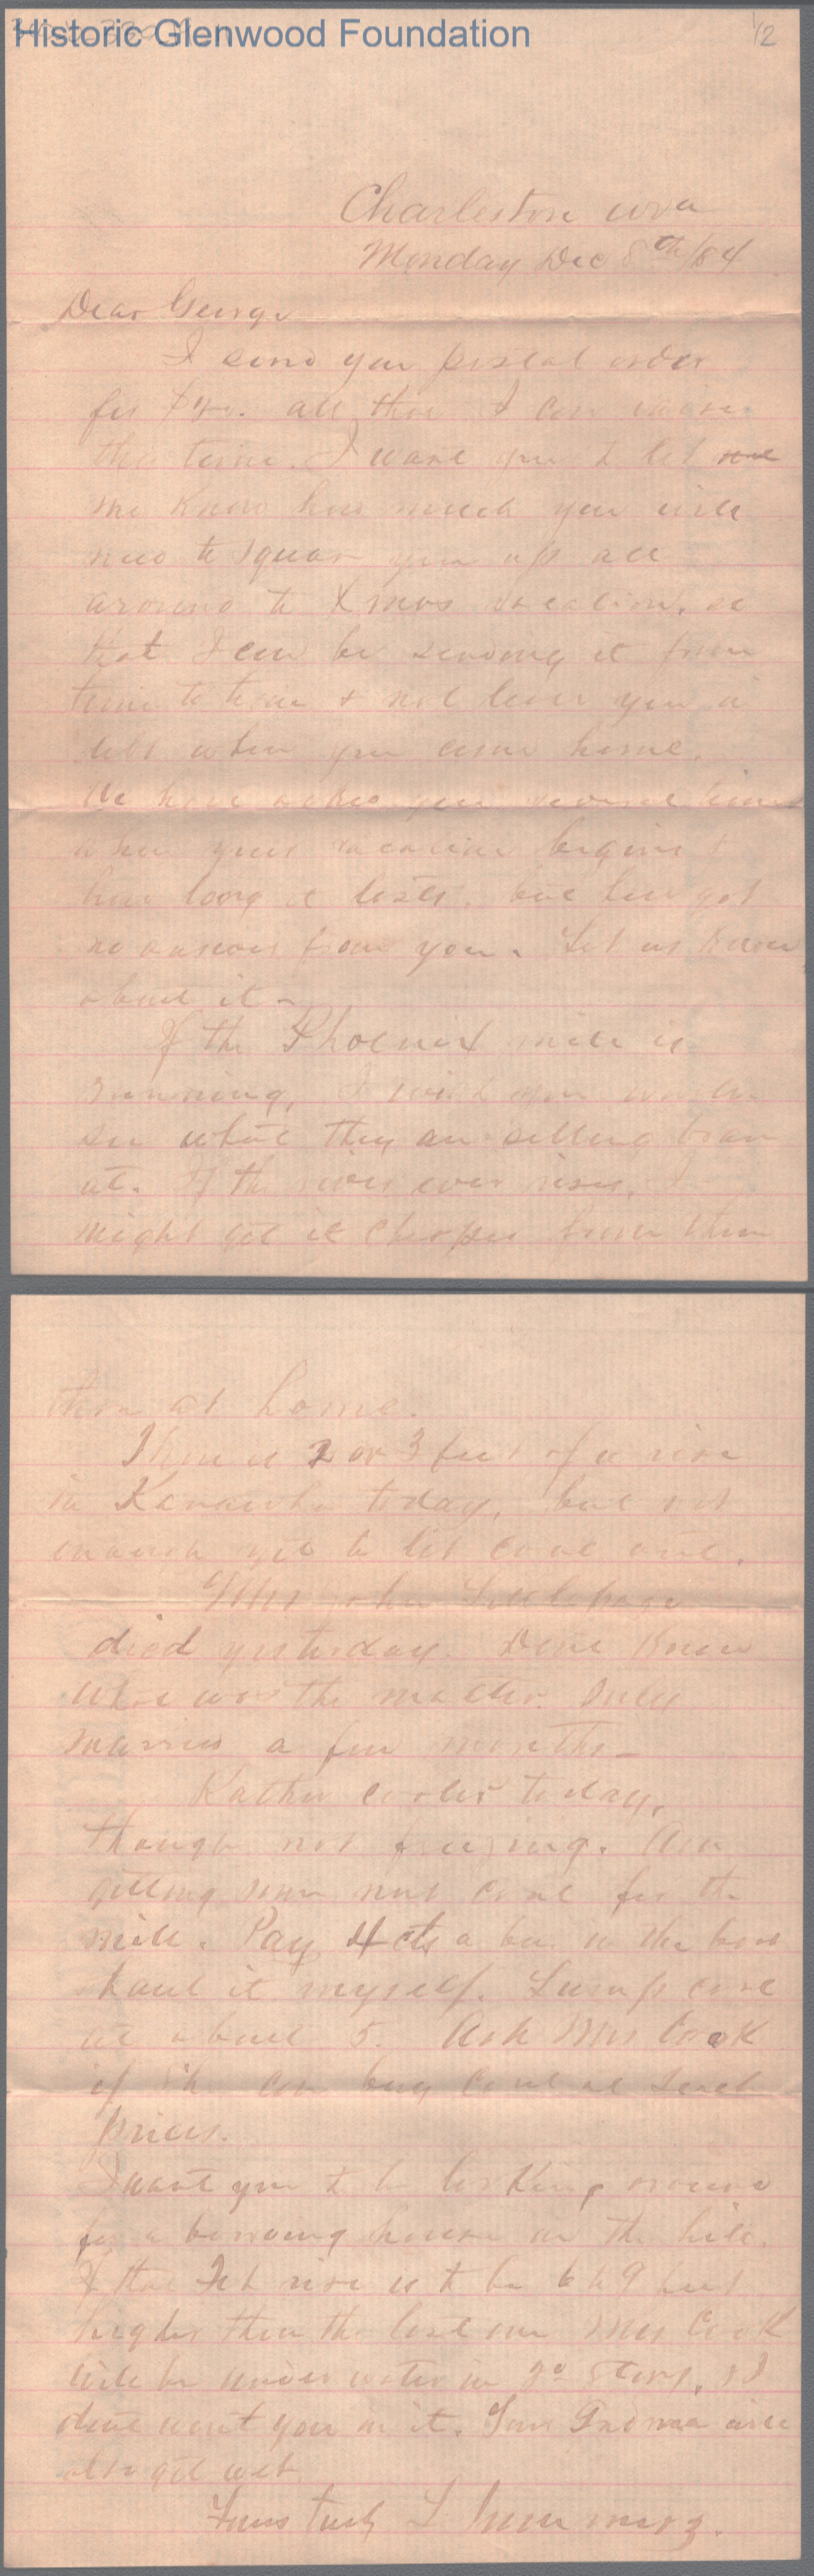 Historic Glenwood Foundation
1/2
Charleston Wva
Monday Dec 8th/84
Dear George
I send you postal order
for all that I can raise
this time. I want you to let me
me know how much you will
need to square you up all
around to Xmas vacation, so
that I can be sending it from
time to time & not leave you in
debt when you come home.
We have asked you several times
when your vacation begins &
how long it lasts, but have got
no answer from you. Let us know
about it -
If the Phoenix mill is
running, I wish you would
see what they are selling bran
at. If the river ever rises, I
might get it cheaper from them
than at home.
There is 2 or 3 feet of a rise
in Kanawha today, but not
enough yet to let coal out.
Mrs John Littlepage
died yesterday. Dont know
what was the matter. Only
married a few months -
Rather cooler today,
though not freezing. Am
getting some nut coal for the
mill. Pay 4 cts a bu. in the boat
haul it myself. Lump coal
at about 5. Ask Mrs Cook
if she can buy coal at such
prices.
I want you to be looking around
for a boarding house on the hill.
If the Feb rise is to be 6 to 9 feet
higher than the last one Mrs Cook
will be under water in 2d story, & I
dont want you in it. Your Grandma will
also get wet.
Yours truly L Summers.